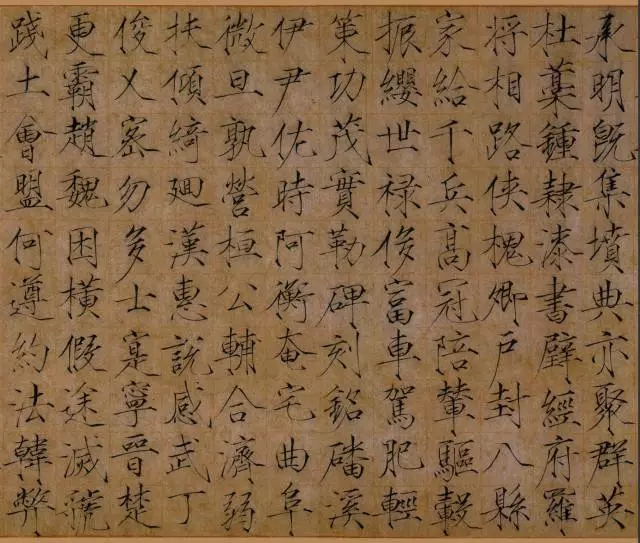 承明既集墳典亦聚群英
杜藁鍾隸漆書壁經府羅
将相路俠槐卿户封八縣
家給千兵髙冠陪輦驅轂
振纓世禄侈富車駕肥輕
策功茂實勒碑刻銘磻溪
伊尹佐時阿衡奄宅曲阜
微旦孰營桓公輔合濟弱
扶傾綺廻漢惠說感武丁
俊乂密勿多士寔寧晉楚
更霸趙魏困橫假途滅虢
踐土會盟何遵約法韓弊